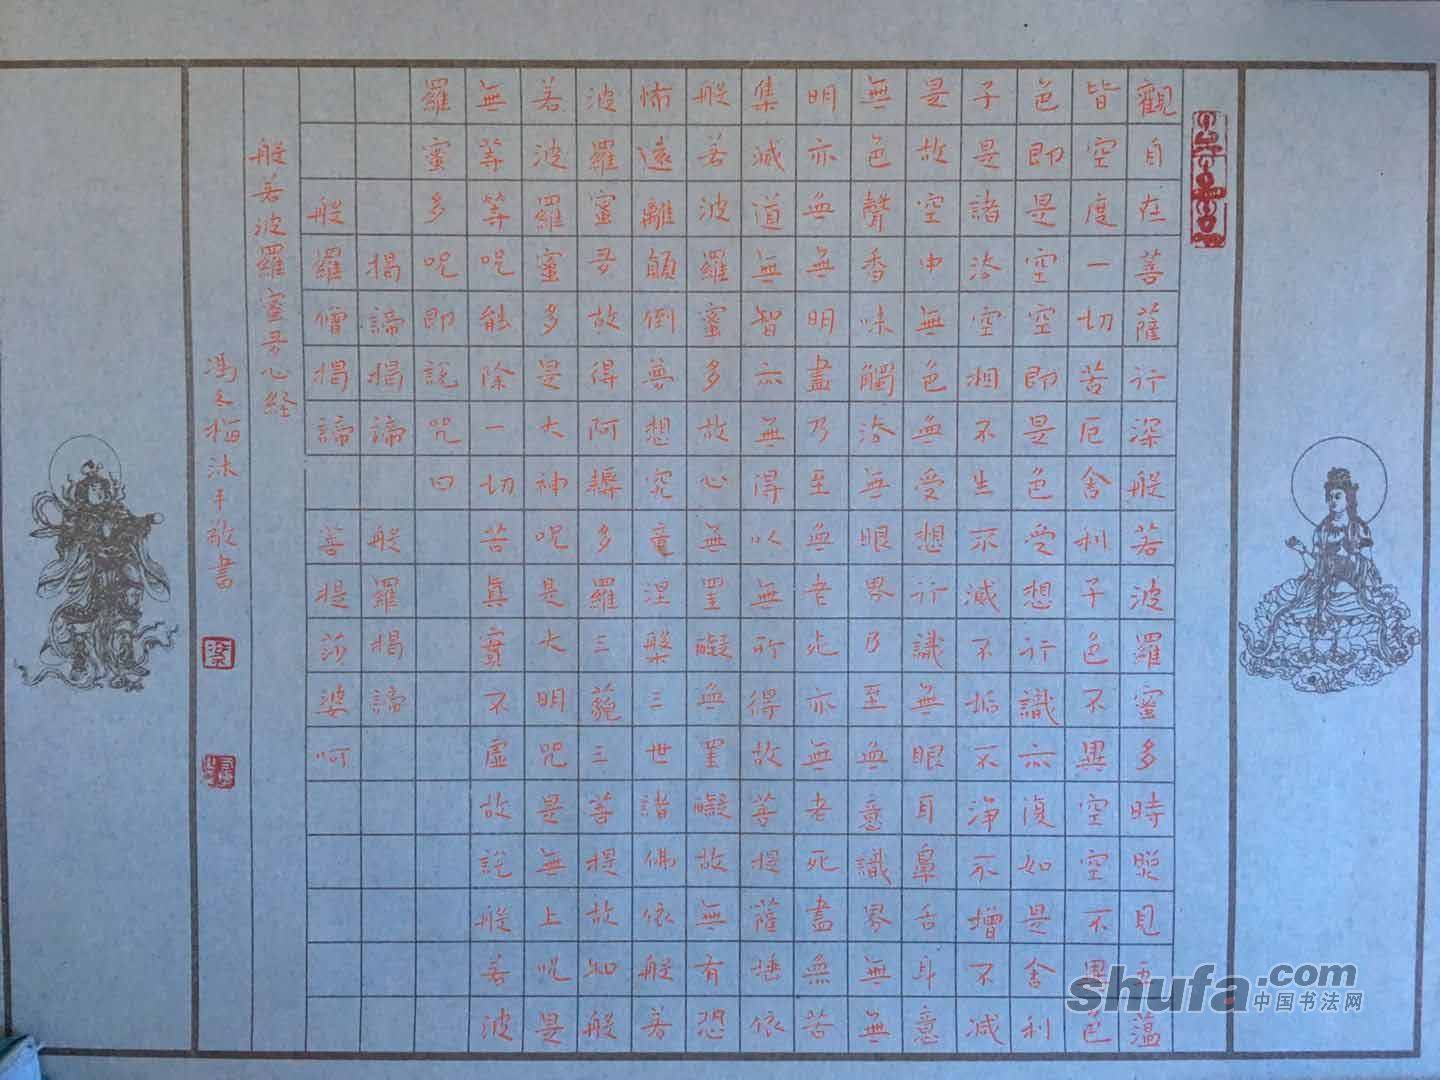 觀自在菩薩行深般若波羅蜜多時照見五蘊
皆空度一切苦厄舍利子色不異空空不異色
色即是空空即是色受想行識亦復如是舍利
子是諸法空相不生不滅不垢不淨不增不減
是故空中無色無受想行識無眼耳鼻舌身意
無色聲香味觸法無眼界乃至無意識界無無
明亦無無明盡乃至無老死亦無老死盡無苦
集滅道無智亦無得以無所得故菩提薩埵依
般若波羅蜜多故心無罣礙無罣礙故無有恐
怖遠離顛倒夢想究竟涅槃三世諸佛依般若
波羅蜜多故得阿耨多羅三藐三菩提故知般
若波羅蜜多是大神咒是大明咒是無上咒是
無等等咒能除一切苦真實不虛故說般若波
羅蜜多咒即說咒曰
揭諦揭諦 般羅揭諦
般羅僧揭諦 菩提莎婆呵
般若波羅蜜多心経
馮冬梅沐手敬書
shufa.com
中国书法网